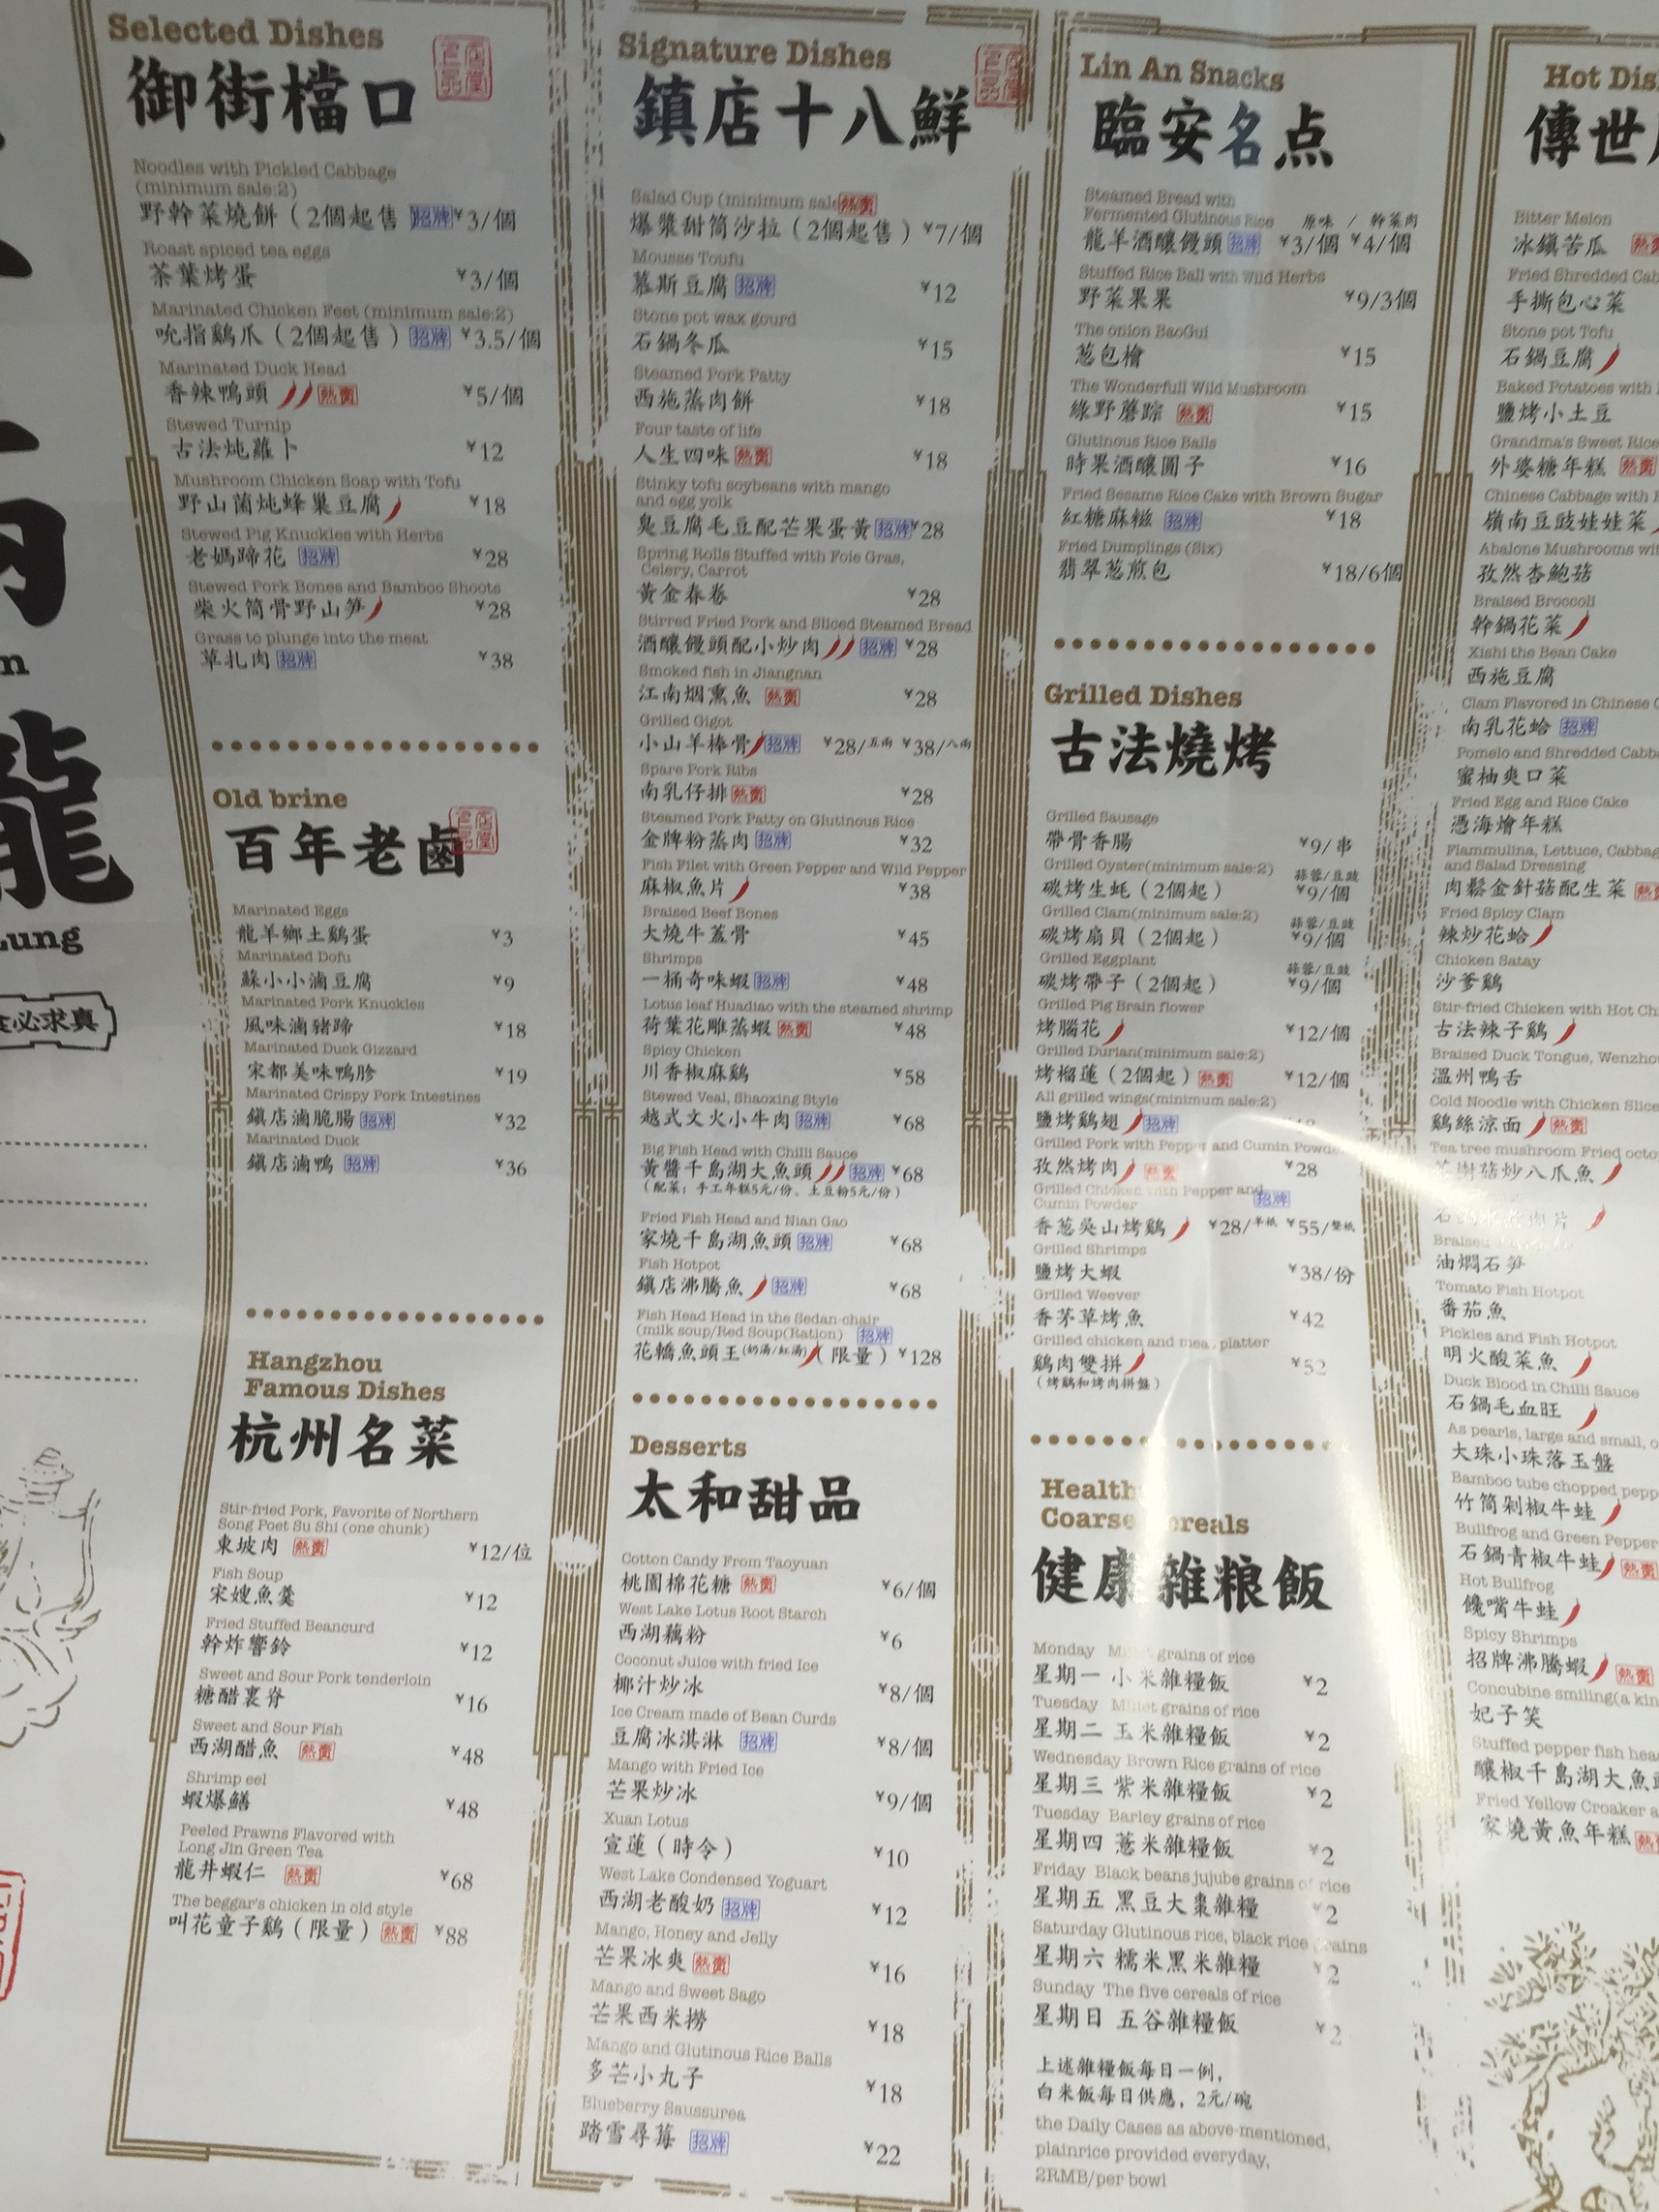 Selected Dishes
御街檔口
Noodles with Pickled Cabbage
(minimum sale:2)
野幹菜燒餅（2個起售）招牌 ¥3/個
Roast spiced tea eggs
茶葉烤蛋 ¥3/個
Marinated Chicken Feet (minimum sale:2)
吮指鷄爪（2個起售）招牌 ¥3.5/個
Marinated Duck Head
香辣鴨頭 熱賣 ¥5/個
Stewed Turnip
古法炖蘿卜 ¥12
Mushroom Chicken Soap with Tofu
野山菌炖蜂巢豆腐 ¥18
Stewed Pig Knuckles with Herbs
老媽蹄花 招牌 ¥28
Stewed Pork Bones and Bamboo Shoots
柴火筒骨野山笋 ¥28
Grass to plunge into the meat
草扎肉 招牌 ¥38
Old brine
百年老鹵
Marinated Eggs
龍羊鄉土鷄蛋 ¥3
Marinated Dofu
蘇小小滷豆腐 ¥9
Marinated Pork Knuckles
風味滷豬蹄 ¥18
Marinated Duck Gizzard
宋都美味鴨胗 ¥19
Marinated Crispy Pork Intestines
鎮店滷脆腸 招牌 ¥32
Marinated Duck
鎮店滷鴨 招牌 ¥36
Hangzhou
Famous Dishes
杭州名菜
Stir-fried Pork, Favorite of Northern
Song Poet Su Shi (one chunk)
東坡肉 熱賣 ¥12/位
Fish Soup
宋嫂魚羹 ¥12
Fried Stuffed Beancurd
幹炸響鈴 ¥12
Sweet and Sour Pork tenderloin
糖醋裏脊 ¥16
Sweet and Sour Fish
西湖醋魚 熱賣 ¥48
Shrimp eel
蝦爆鱔 ¥48
Peeled Prawns Flavored with
Long Jin Green Tea
龍井蝦仁 熱賣 ¥68
The beggar's chicken in old style
叫花童子鷄（限量）熱賣 ¥88
Signature Dishes
鎮店十八鮮
Salad Cup (minimum sale 熱賣
爆漿甜筒沙拉（2個起售）¥7/個
Mousse Toufu
慕斯豆腐 招牌 ¥12
Stone pot wax gourd
石鍋冬瓜 ¥15
Steamed Pork Patty
西施蒸肉餅 ¥18
Four taste of life
人生四味 熱賣 ¥18
Stinky tofu soybeans with mango
and egg yolk
臭豆腐毛豆配芒果蛋黃 招牌 ¥28
Spring Rolls Stuffed with Foie Gras,
Celery, Carrot
黃金春卷 ¥28
Stirred Fried Pork and Sliced Steamed Bread
酒釀饅頭配小炒肉 招牌 ¥28
Smoked fish in Jiangnan
江南烟熏魚 熱賣 ¥28
Grilled Gigot
小山羊棒骨 招牌 ¥28/五兩 ¥38/八兩
Spare Pork Ribs
南乳仔排 熱賣 ¥28
Steamed Pork Patty on Glutinous Rice
金牌粉蒸肉 招牌 ¥32
Fish Filet with Green Pepper and Wild Pepper
麻椒魚片 ¥38
Braised Beef Bones
大燒牛蓋骨 ¥45
Shrimps
一桶奇味蝦 招牌 ¥48
Lotus leaf Huadiao with the steamed shrimp
荷葉花雕蒸蝦 熱賣 ¥48
Spicy Chicken
川香椒麻鷄 ¥58
Stewed Veal, Shaoxing Style
越式文火小牛肉 招牌 ¥68
Big Fish Head with Chilli Sauce
黃醬千島湖大魚頭 招牌 ¥68
（配菜：手工年糕5元/份、土豆粉5元/份）
Fried Fish Head and Nian Gao
家燒千島湖魚頭 招牌 ¥68
Fish Hotpot
鎮店沸騰魚 招牌 ¥68
Fish Head Head in the Sedan-chair
(milk soup/Red Soup(Ration) 招牌
花轎魚頭王(奶湯/紅湯)（限量）¥128
Desserts
太和甜品
Cotton Candy From Taoyuan
桃園棉花糖 熱賣 ¥6/個
West Lake Lotus Root Starch
西湖藕粉 ¥6
Coconut Juice with fried Ice
椰汁炒冰 ¥8/個
Ice Cream made of Bean Curds
豆腐冰淇淋 招牌 ¥8/個
Mango with Fried Ice
芒果炒冰 ¥9/個
Xuan Lotus
宣蓮（時令） ¥10
West Lake Condensed Yoguart
西湖老酸奶 招牌 ¥12
Mango, Honey and Jelly
芒果冰爽 熱賣 ¥16
Mango and Sweet Sago
芒果西米撈 ¥18
Mango and Glutinous Rice Balls
多芒小丸子 ¥18
Blueberry Saussurea
踏雪尋莓 招牌 ¥22
Lin An Snacks
臨安名点
Steamed Bread with
Fermented Glutinous Rice 原味 / 幹菜肉
龍羊酒釀饅頭 招牌 ¥3/個 ¥4/個
Stuffed Rice Ball with Wild Herbs
野菜果果 ¥9/3個
The onion BaoGui
葱包檜 ¥15
The Wonderfull Wild Mushroom
綠野蘑踪 熱賣 ¥15
Glutinous Rice Balls
時果酒釀圓子 ¥16
Fried Sesame Rice Cake with Brown Sugar
紅糖麻糍 招牌 ¥18
Fried Dumplings (Six)
翡翠葱煎包 ¥18/6個
Grilled Dishes
古法燒烤
Grilled Sausage
帶骨香腸 ¥9/串
Grilled Oyster(minimum sale:2) 蒜蓉/豆豉
碳烤生蚝（2個起） ¥9/個
Grilled Clam(minimum sale:2) 蒜蓉/豆豉
碳烤扇貝（2個起） ¥9/個
Grilled Eggplant 蒜蓉/豆豉
碳烤帶子（2個起） ¥9/個
Grilled Pig Brain flower
烤腦花 ¥12/個
Grilled Durian(minimum sale:2)
烤榴蓮（2個起）熱賣 ¥12/個
All grilled wings(minimum sale:2)
鹽烤鷄翅 招牌
Grilled Pork with Pepper and Cumin Powder
孜然烤肉 熱賣 ¥28
Grilled Chicken with Pepper and
Cumin Powder 招牌
香葱吳山烤鷄 ¥28/半衹 ¥55/整衹
Grilled Shrimps
鹽烤大蝦 ¥38/份
Grilled Weever
香茅草烤魚 ¥42
Grilled chicken and platter
鷄肉雙拼 ¥52
（烤鷄和烤肉拼盤）
Health
Coarse ereals
健康雜粮飯
Monday grains of rice
星期一 小米雜糧飯 ¥2
Tuesday Millet grains of rice
星期二 玉米雜糧飯 ¥2
Wednesday Brown Rice grains of rice
星期三 紫米雜糧飯 ¥2
Tuesday Barley grains of rice
星期四 薏米雜糧飯 ¥2
Friday Black beans jujube grains of rice
星期五 黑豆大棗雜糧 ¥2
Saturday Glutinous rice, black rice grains
星期六 糯米黑米雜糧 ¥2
Sunday The five cereals of rice
星期日 五谷雜糧飯 ¥2
上述雜糧飯每日一例，
白米飯每日供應，2元/碗
the Daily Cases as above-mentioned,
plainrice provided everyday,
2RMB/per bowl
Hot Dis
傳世
Bitter Melon
冰鎮苦瓜
Fried Shredded Cab
手撕包心菜
Stone pot Tofu
石鍋豆腐
Baked Potatoes with
鹽烤小土豆
Grandma's Sweet Rice
外婆糖年糕 熱賣
Chinese Cabbage with
嶺南豆豉娃娃菜
Abalone Mushrooms wit
孜然杏鮑菇
Braised Broccoli
幹鍋花菜
Xishi the Bean Cake
西施豆腐
Clam Flavored in Chinese
南乳花蛤 招牌
Pomelo and Shredded Cabb
蜜柚爽口菜
Fried Egg and Rice Cake
憑海燴年糕
Flammulina, Lettuce, Cabbag
and Salad Dressing
肉鬆金針菇配生菜
Fried Spicy Clam
辣炒花蛤
Chicken Satay
沙爹鷄
Stir-fried Chicken with Hot Ch
古法辣子鷄
Braised Duck Tongue, Wenzho
溫州鴨舌
Cold Noodle with Chicken Slice
鷄絲涼面 熱賣
Tea tree mushroom Fried octo
茶樹菇炒八爪魚
Braised
油燜石笋
Tomato Fish Hotpot
番茄魚
Pickles and Fish Hotpot
明火酸菜魚
Duck Blood in Chilli Sauce
石鍋毛血旺
As pearls, large and small, o
大珠小珠落玉盤
Bamboo tube chopped pepp
竹筒剁椒牛蛙
Bullfrog and Green Pepper
石鍋青椒牛蛙 熱賣
Hot Bullfrog
饞嘴牛蛙
Spicy Shrimps
招牌沸騰蝦 熱賣
Concubine smiling(a kin
妃子笑
Stuffed pepper fish hea
釀椒千島湖大魚
Fried Yellow Croaker a
家燒黃魚年糕
龍
Lung
食必求真